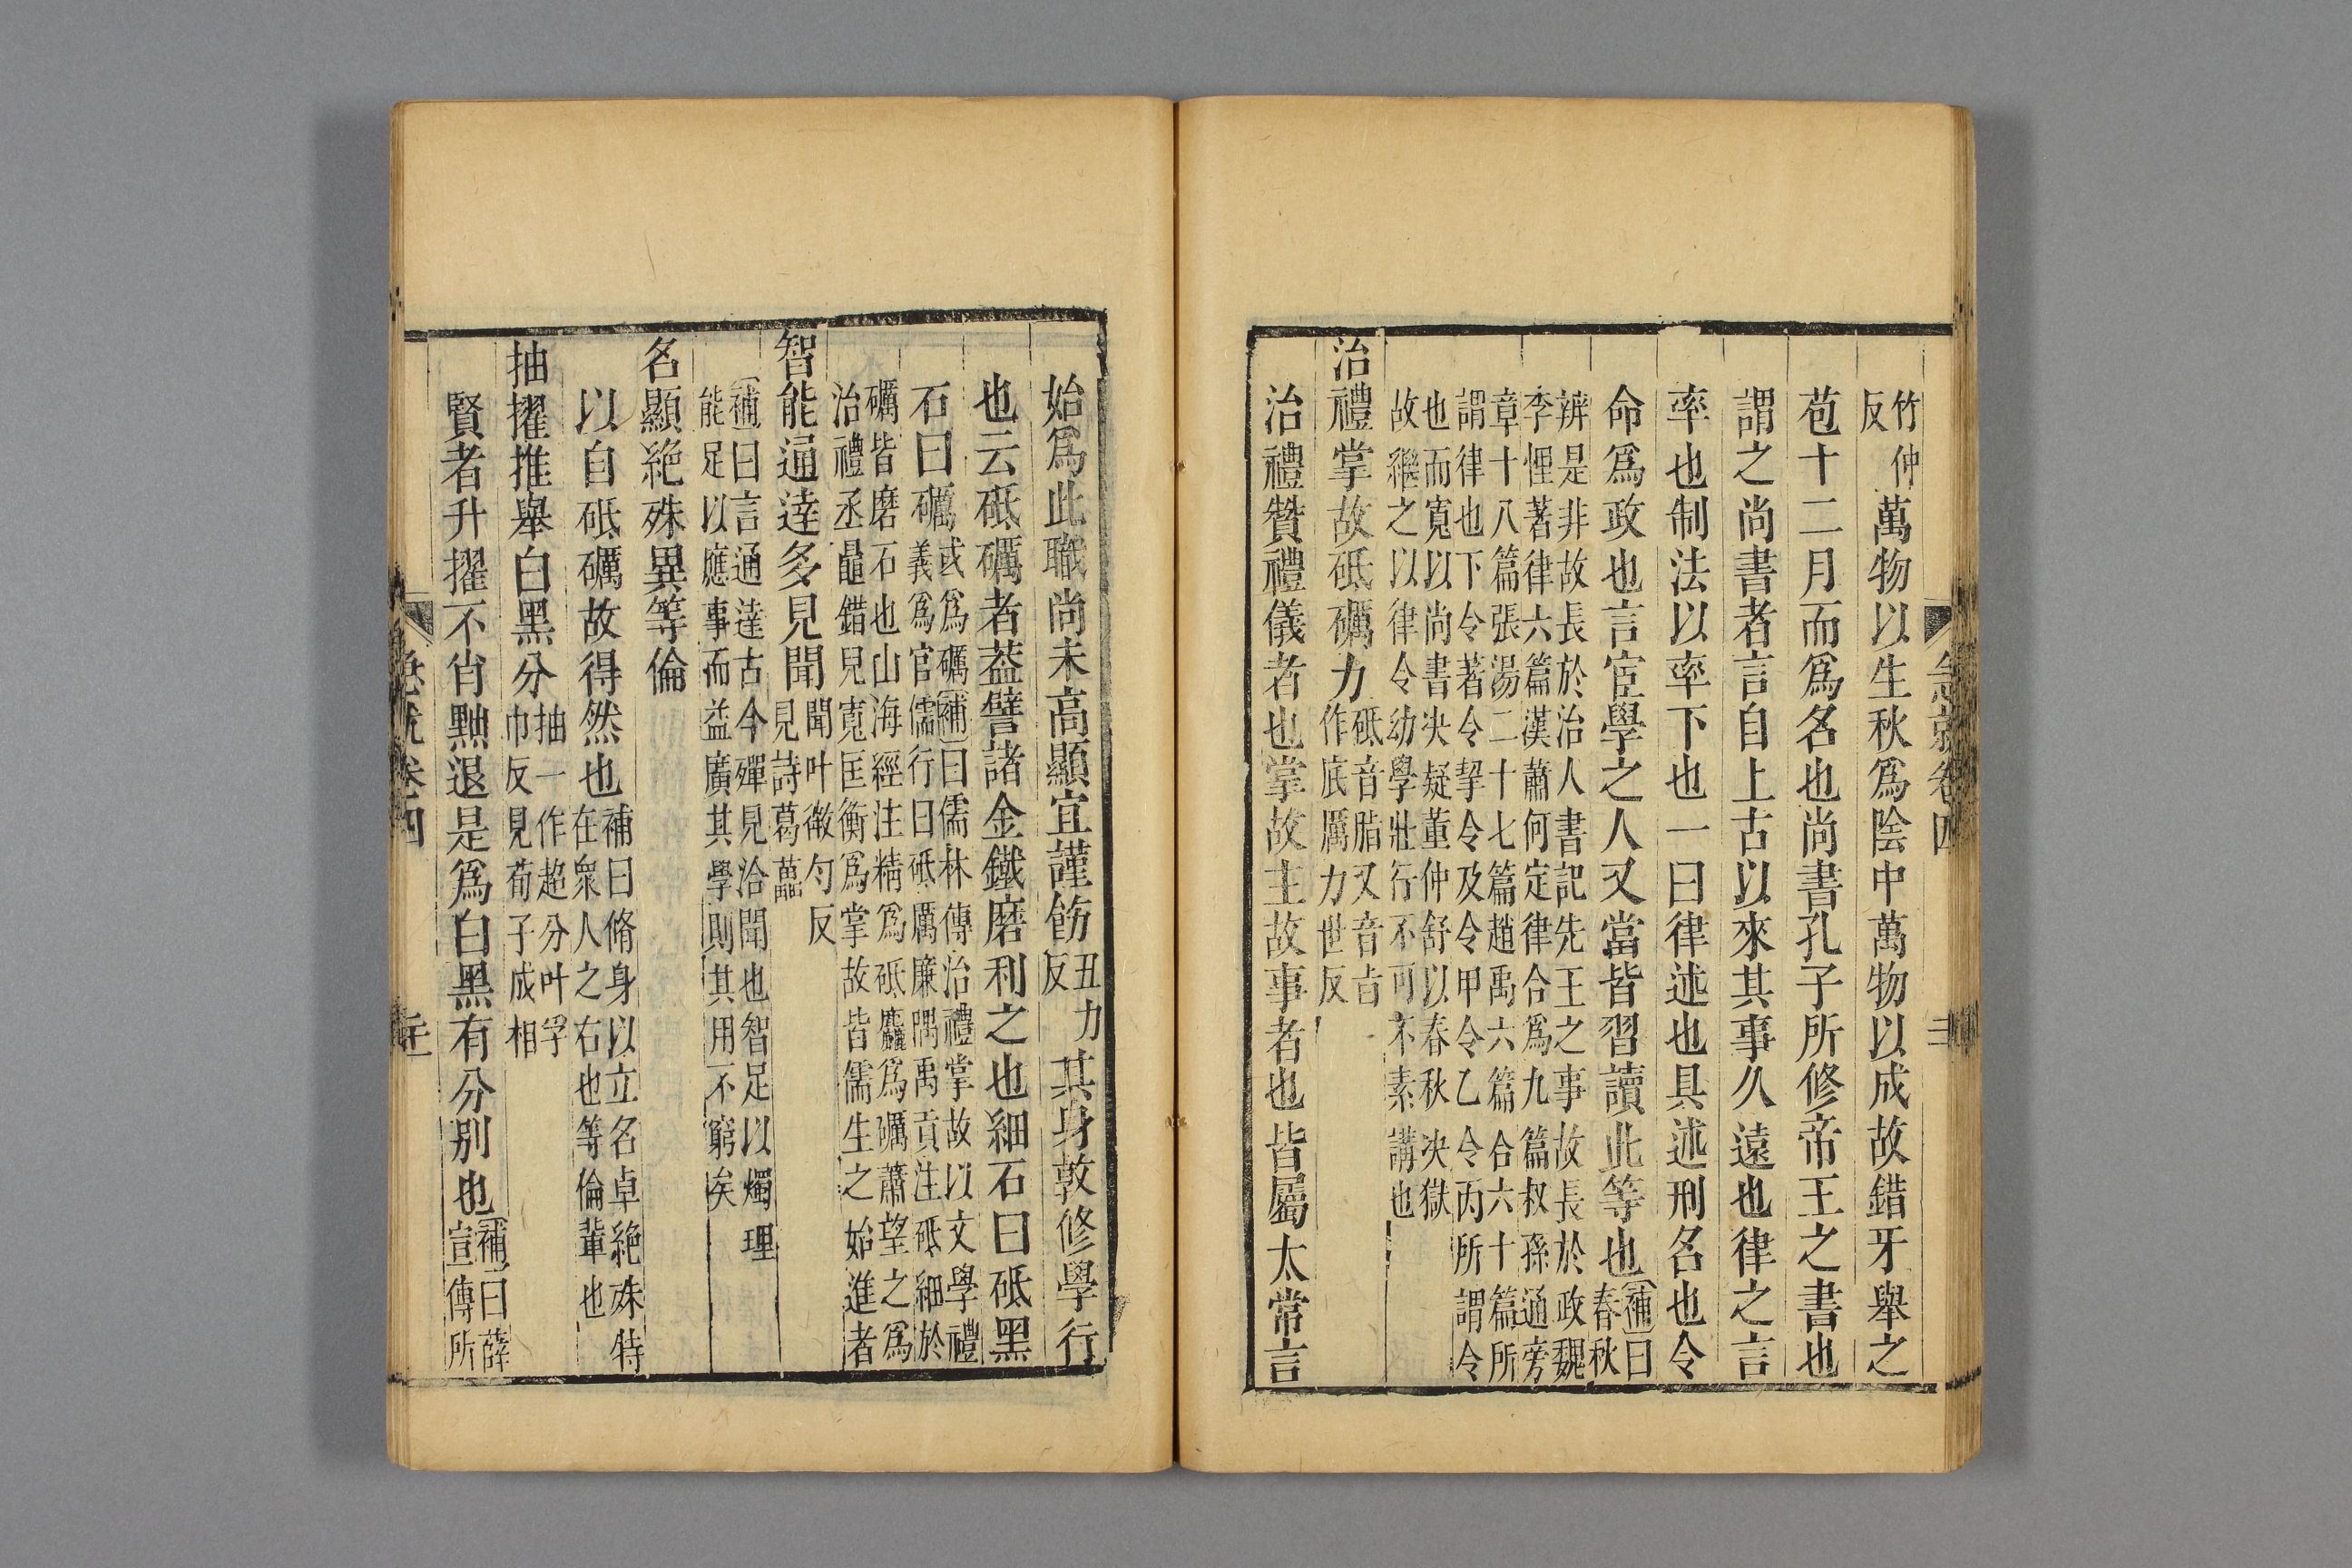 急就卷四
竹仲反萬物以生秋爲陰中萬物以成故錯牙舉之
苞十二月而爲名也尚書孔子所修帝王之書也
謂之尚書者言自上古以來其事久遠也律之言
率也制法以率下也一曰律述也具述刑名也令
命爲政也言宦學之人又當皆習讀此等也補曰春秋
辨是非故長於治人書記先王之事故長於政魏
李悝著律六篇漢蕭何定律合爲九篇叔孫通旁
章十八篇張湯二十七篇趙禹六篇合六十篇所
謂律也下令著令挈令及令甲令乙令丙所謂令
也而寬以尚書决疑董仲舒以春秋决獄
故繼之以律令幼學壯行不可不素講也
治禮掌故砥礪力砥音脂又音旨作底厲力世反
治禮贊禮儀者也掌故主故事者也皆屬太常言
始爲此職尚未高顯宜謹飭丑力反其身敦修學行
也云砥礪者葢譬諸金鐵磨利之也細石曰砥黑
石曰礪或爲礪補曰儒林傳治禮掌故以文學禮
義爲官儒行曰砥厲廉隅禹貢注砥細於
礪皆磨石也山海經注精爲砥麤爲礪蕭望之爲
治禮丞鼂錯兒寬匡衡爲掌故皆儒生之始進者
智能通達多見聞聞叶微勻反見詩葛藟
補曰言通達古今殫見洽聞也智足以燭理
能足以應事而益廣其學則其用不窮矣
名顯絶殊異等倫
以自砥礪故得然也補曰脩身以立名卓絶殊特在衆人之右也等倫輩也
抽擢推舉白黑分抽一作超分叶孚巾反見荀子成相
賢者升擢不肖黜退是爲白黑有分别也補曰薛宣傳所
卷四